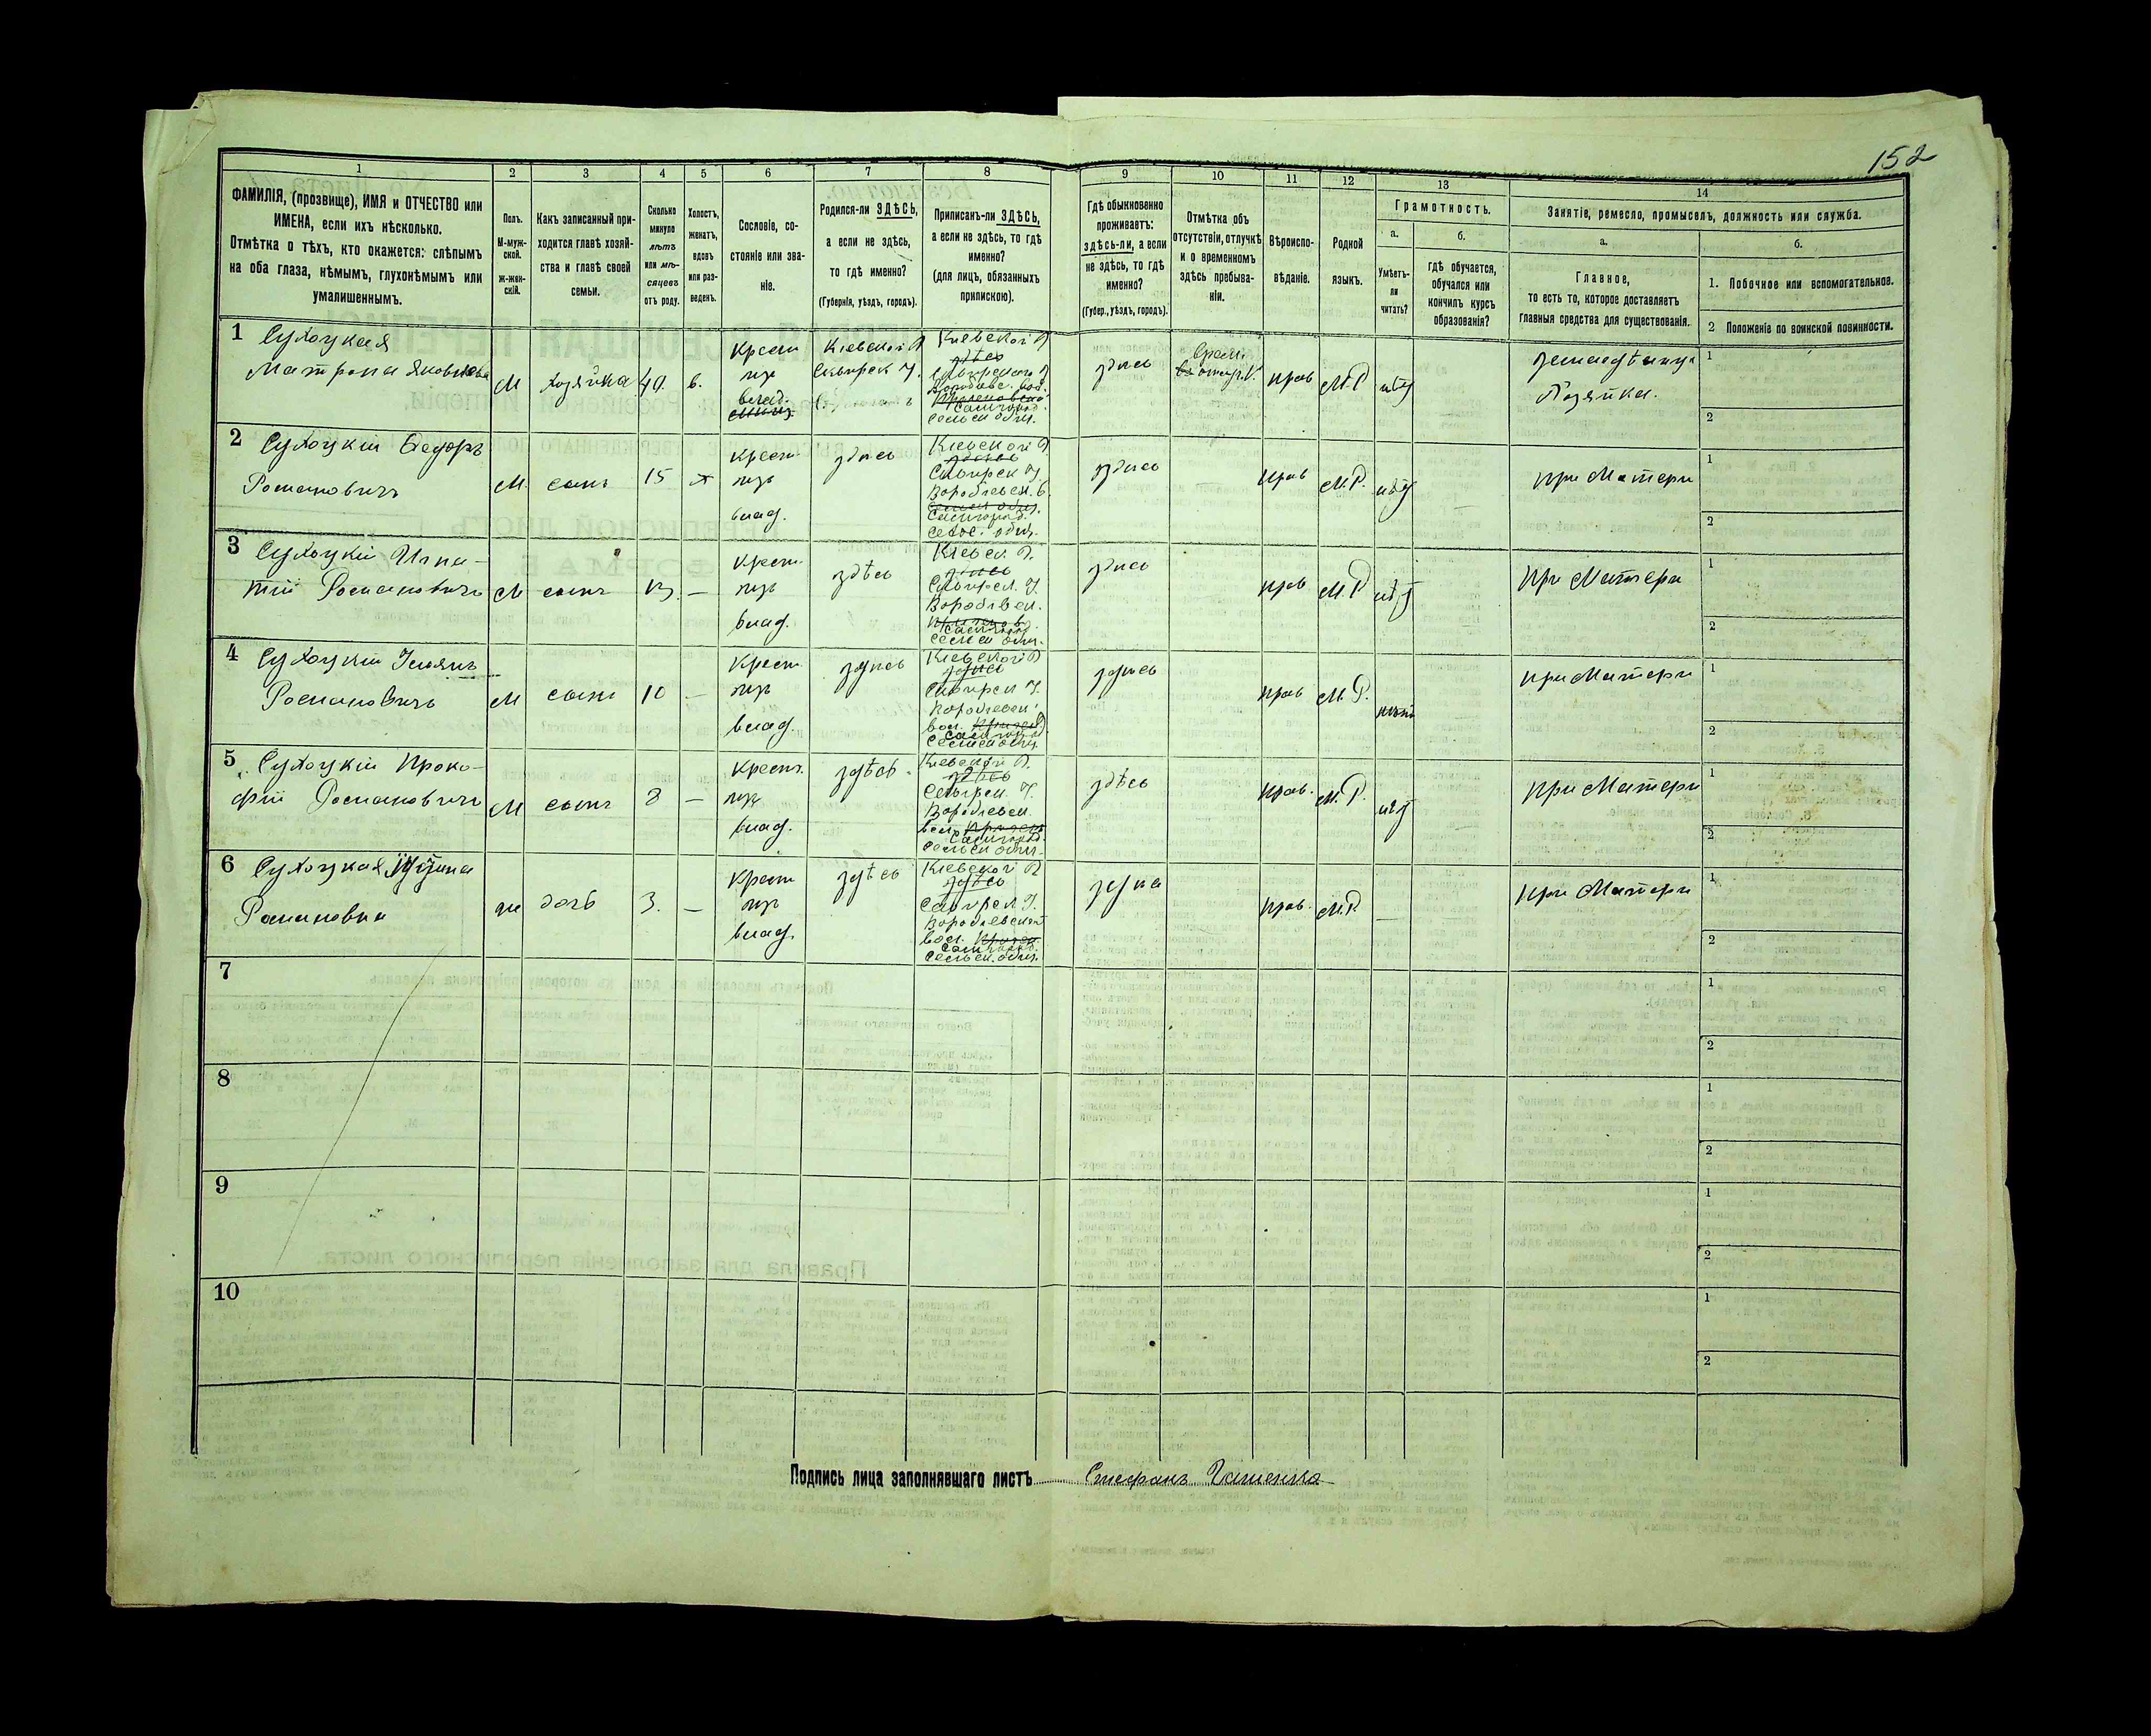 152
1 2 3 4 5 6 7 8 9 10 11 12 13 14
ФАМИЛІЯ, (прозвище), ИМЯ и ОТЧЕСТВО или
ИМЕНА, если ихъ нѣсколько.
Отмѣтка о тѣхъ, кто окажется: слѣпымъ
на оба глаза, нѣмымъ, глухонѣмымъ или
умалишеннымъ.
Полъ.
М-муж-
ской.
ж-жен-
скій.
Какъ записанный при-
ходится главѣ хозяй-
ства и главѣ своей
семьи.
Сколько
минуло
лѣтъ
или мѣ-
сяцевъ
отъ роду.
Холостъ,
женатъ,
вдовъ
или раз-
веденъ.
Сословіе, со-
стояніе или зва-
ніе.
Родился-ли ЗДѢСЬ,
а если не здѣсь,
то гдѣ именно?
(Губернія, уѣздъ, городъ).
Приписанъ-ли ЗДѢСЬ,
а если не здѣсь, то гдѣ
именно?
(для лицъ, обязанныхъ
припискою).
Гдѣ обыкновенно
проживаетъ:
здѣсь-ли, а если
не здѣсь, то гдѣ
именно?
(Губер., уѣздъ, городъ).
Отмѣтка объ
отсутствіи, отлучкѣ
и о временномъ
здѣсь пребыва-
ніи.
Вѣроиспо-
вѣданіе.
Родной
языкъ.
Грамотность.
а.
Умѣетъ-
ли
читать?
б.
гдѣ обучается,
обучался или
кончилъ курсъ
образованія?
Занятіе, ремесло, промыселъ, должность или служба.
а.
Главное,
то есть то, которое доставляетъ
главныя средства для существованія.
б.
1. Побочное или вспомогательное.
2 Положеніе по воинской повинности.
1 Сухоцкая
Матрона Яковлева
М хозяйка 40. в.
Крест
изъ
влад.
Кіевской Г
Сквирск У.
Кіевской Г
здѣсь
Сквирского У
вол.
Сельск общ.
здись
прав М.Р нѣт
Хозяйка.
1
2
2 Сухоцкій Федоръ
Романовичъ
М. сынъ 15 х
Крест
изъ
влад.
здись
Кіевской Г
Сквирск У
Воробіевск. в.
здись прав М.Р. нѣт
при Матери
1
2
3 Сухоцкій Игна-
тій Романовичъ
М сынъ 13. —
Крест.
изъ
влад.
здѣсь
Кіевск. Г.
здись
Сквирск. У.
Воробіевск.
Сельск общ.
здись прав М.Р нѣт
При Матери
1
2
4 Сухоцкій
Романовичъ
М сынъ 10 —
Крест.
изъ
влад.
здись
Кіевской Г
здись
Сквирск У.
Воробіевск.
вол.
Сельск общ.
здись прав М.Р.
при Матери
1
2
5 Сухоцкій Проко-
фій Романовичъ
М сынъ 8 —
Крест.
изъ
влад.
здѣсь
Кіевской Г.
здѣсь
Сквирск. У.
Воробіевск.
вол.
Сельск общ.
здѣсь прав. М.Р. нѣт
при Матери
1
2
6 Сухоцкая
Романовна
ж дочь 3. —
Крест
изъ
влад.
здѣсь
Кіевской Г
здѣсь
Сквирск У.
Воробіевской
вол.
Сельск. общ.
прав. М.Р. —
при Матери
1
2
7
1
2
8
1
2
9
1
2
10
1
2
Подпись лица заполнявшаго листъ Стефанъ